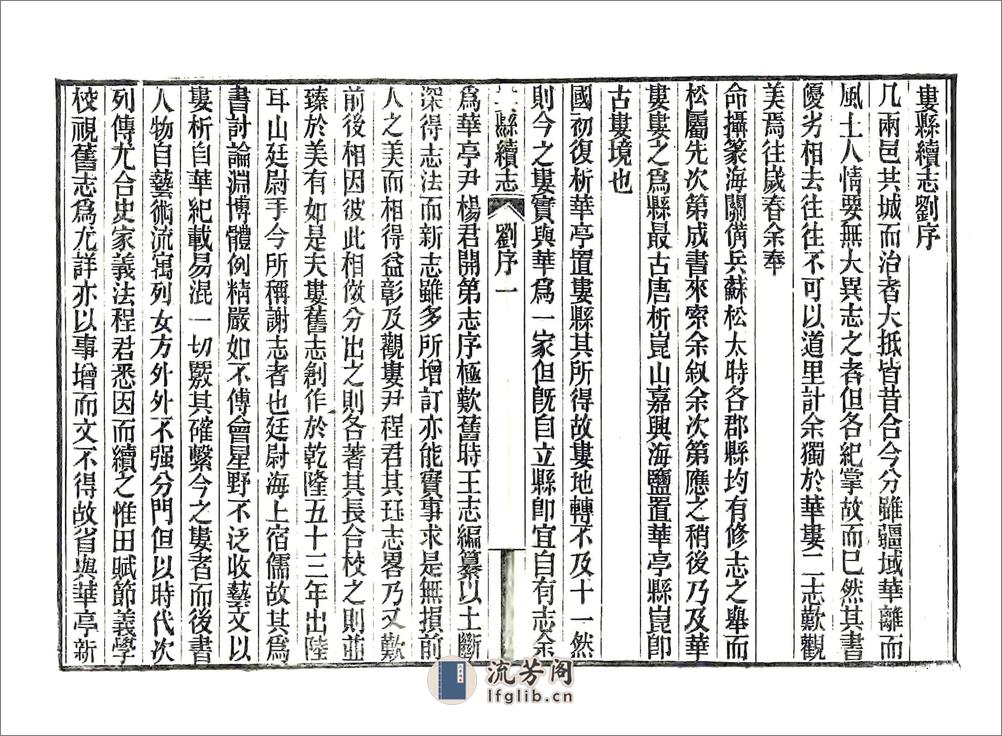 婁縣續志劉序
凡兩邑共城而治者大抵皆昔合今分雖疆域華離而
風土人情要無大異志之者但各紀掌故而已然其書
優劣相去往往不可以道里計余獨於華婁二志歎觀
美焉往歲春余奉
命攝篆海關備兵蘇松太時各郡縣均有修志之舉而
松屬先次第成書來索余敘余次第應之稍後乃及華
婁婁之為縣最古唐析崑山嘉興海鹽置華亭縣崑卽
古婁境也
國初復析華亭置婁縣其所得故婁地轉不及十一然
則今之婁實與華為一家但旣自立縣卽宜自有志余
縣續志
劉序 一
為華亭尹楊君開第志序極歎舊時王志編纂以土斷
深得志法而新志雖多所增訂亦能實事求是無損前
人之美而相得益彰及觀婁尹程君其珏志畧乃又歎
前後相因彼此相倣分出之則各著其長合校之則並
臻於美有如是夫婁舊志創作於乾隆五十三年出陸
耳山廷尉手今所稱謝志者也廷尉海上宿儒故其為
書討論淵博體例精嚴如不傅會星野不泛收藝文以
婁析自華紀載易混一切覈其確繫今之婁者而後書
人物自藝術流寓列女方外外不强分門但以時代次
列傳尤合史家義法程君悉因而續之惟田賦節義學
校視舊志為尤詳亦以事增而文不得故省與華亭新
流芳阁
lfglib.cn